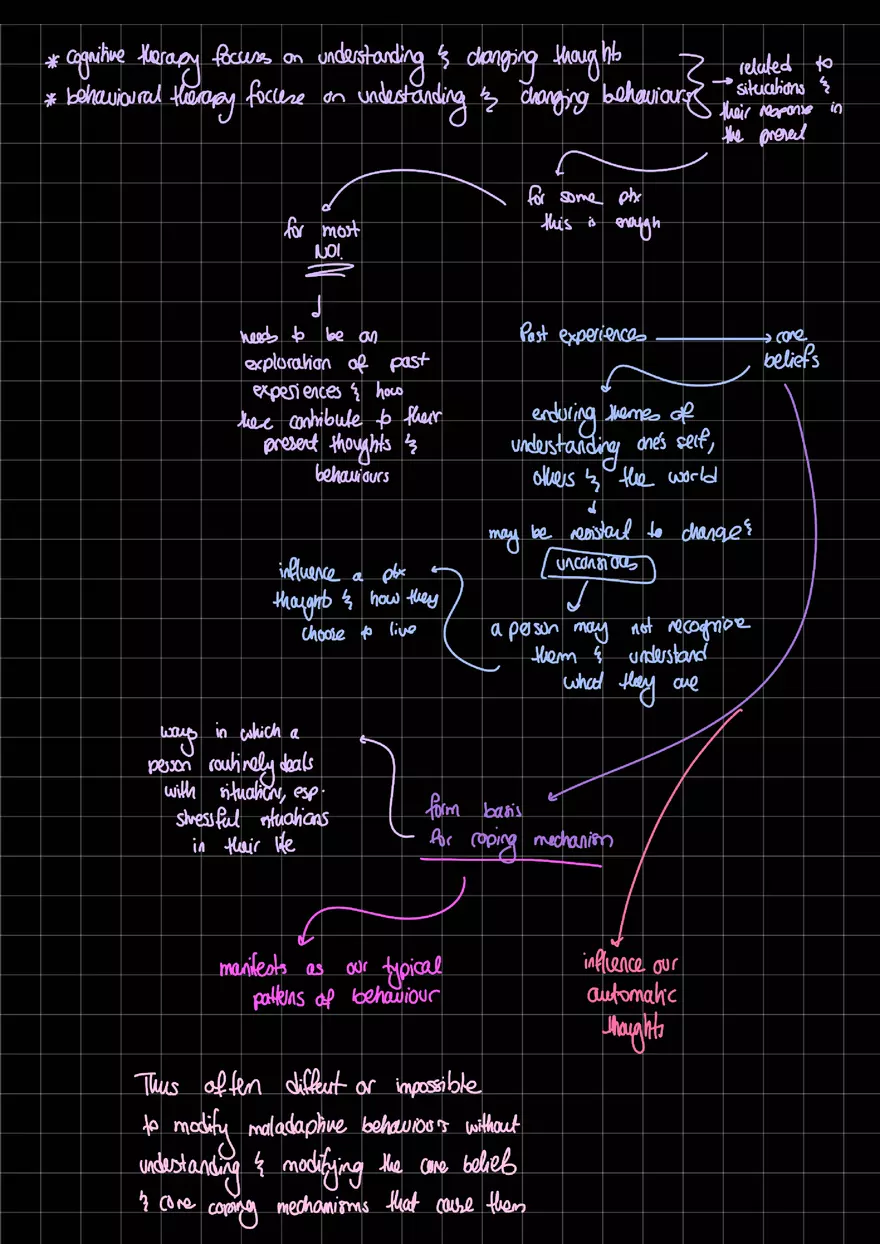 * cognitive therapy focuses on understanding & changing thoughts
* behavioural therapy focuse on understanding & changing behaviours
related to
situations &
their response in
the present
for some ptx
this is enough
for most
NO!
needs to be an
exploration of past
experiences & how
these contribute to their
present thoughts &
behaviours
Past experiences
core
beliefs
enduring themes of
understanding one's self,
others & the world
may be resistant to change &
unconsious
a person may not recognise
them & understand
what they are
influence a ptx
thoughts & how they
choose to live
ways in which a
person routinely deals
with situation, esp.
stressful situations
in their life
form basis
for coping mechanism
manifests as our typical
patterns of behaviour
influence our
automatic
thoughts
Thus often difficult or impossible
to modify maladaptive behaviours without
understanding & modifying the core belief
& core coping mechanisms that cause them